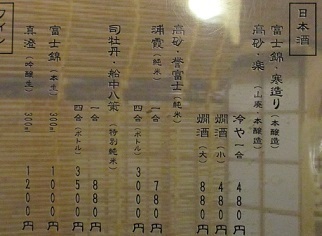 日本酒
富士錦・寒造り（本醸造）
高砂・楽（山廃・本醸造）
冷や一合 480円
燗酒（小） 480円
燗酒（大） 880円
高砂・誉富士（純米）
浦霞（純米）
一合 780円
四合（ボトル） 3000円
司牡丹・船中八策（特別純米）
一合 880円
四合（ボトル） 3500円
富士錦（本生） 300ml 1000円
真澄（吟醸生） 300ml 1200円
ワイ